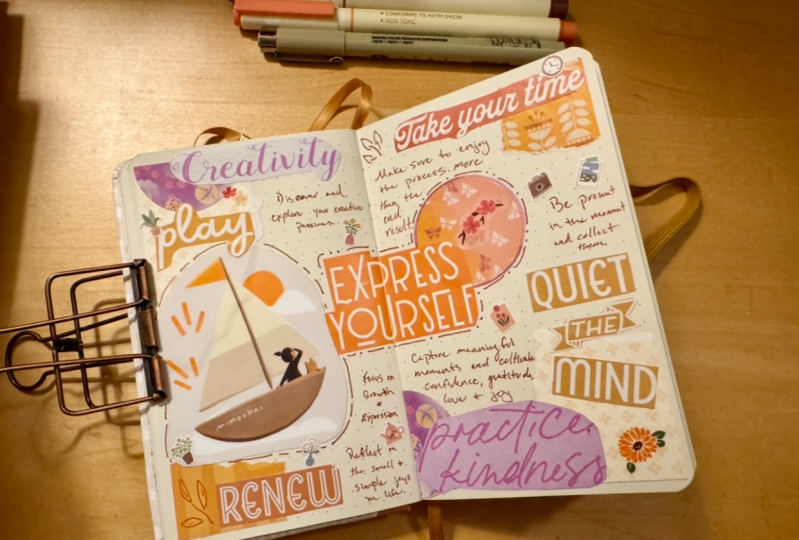 • CONFORMS TO ASTM D4236
• NON TOXIC
SAKURA COLOR PRODUCTS CORPORATION
Creativity
play
Discover and
explore your creative
passions.
EXPRESS
YOURSELF
mimochai
Focus on
Growth
+
Expression
Reflect on
the small +
simple joys
in life.
RENEW
Take your time
Make sure to enjoy
the process, more
than the
end
result.
Be present
in the moment
and collect
them.
QUIET
THE
MIND
Capture meaningful
moments and cultivate
confidence, gratitude,
love + joy
practice
kindness